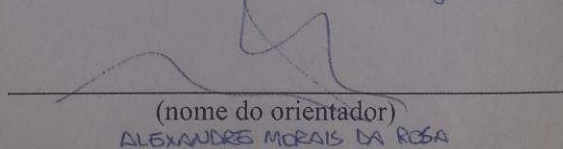 (nome do orientador)
ALEXANDRE MORAIS DA ROSA